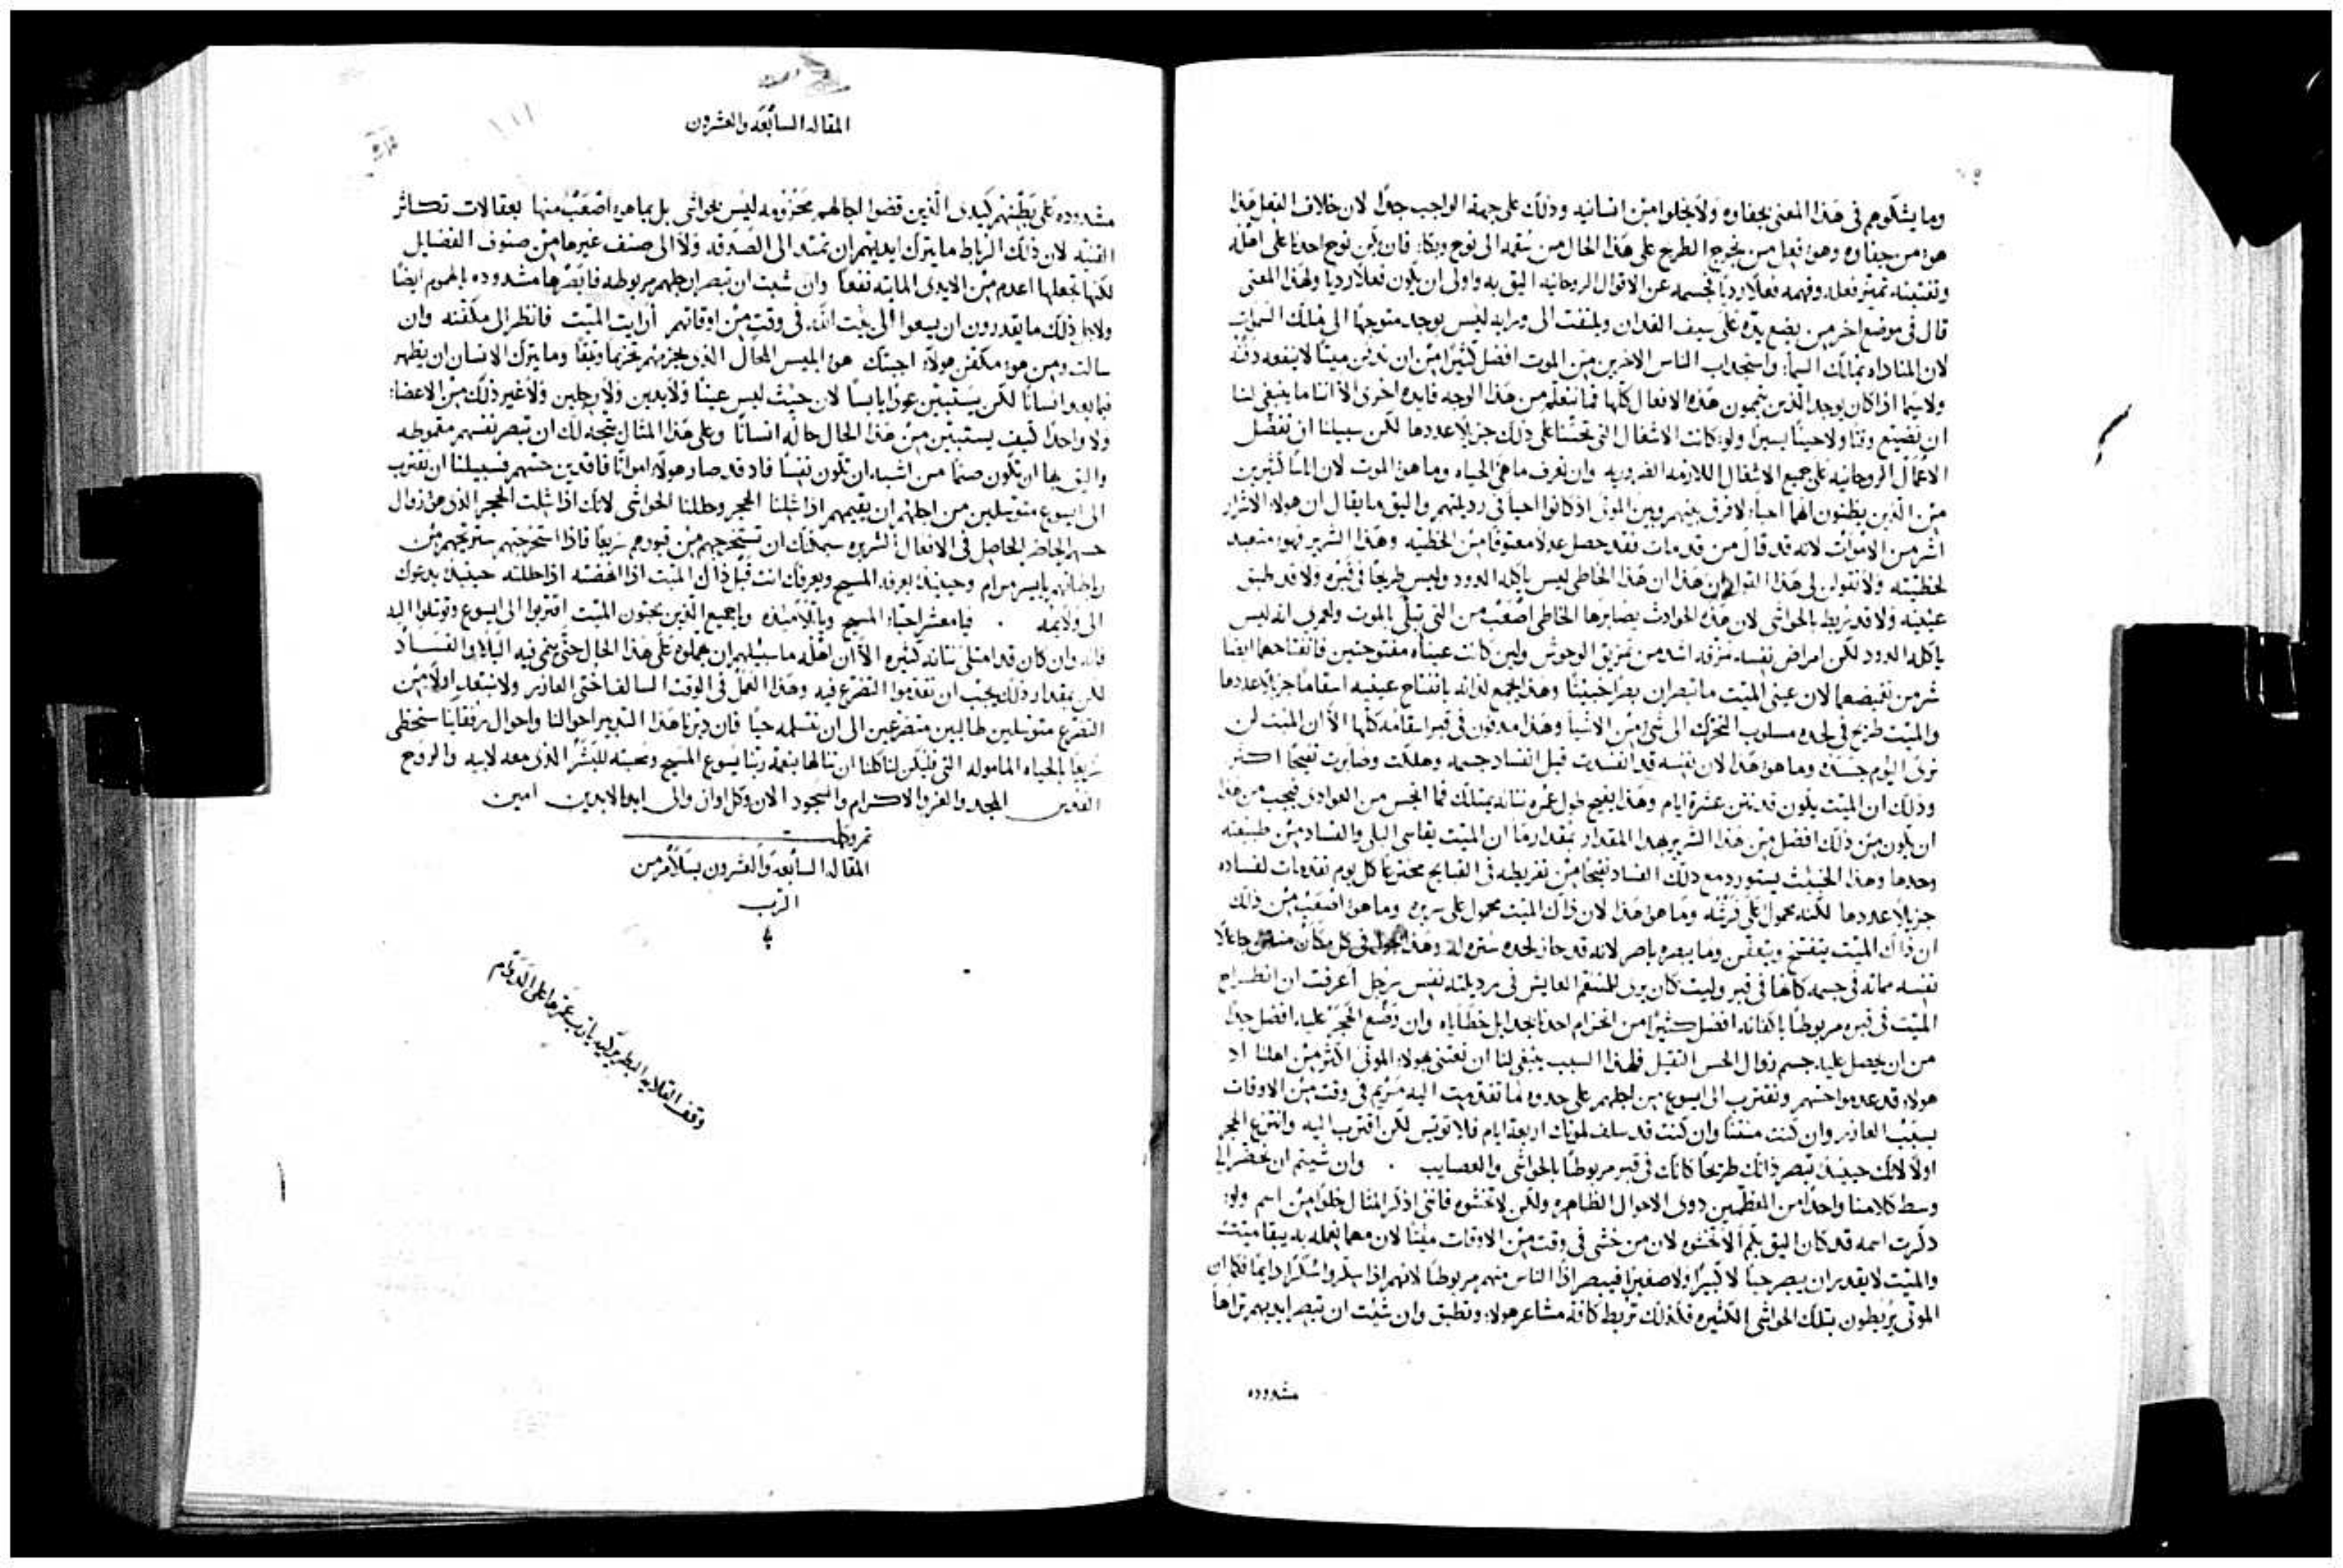 وما يشكوهم في هذا المعنى بجفاوه ولا يخلوا من انسانيه وذلك على جهة الواجب جدا لان خلاف الفعل هذا
هو من جفاوه وهو فعل من يخرج الطرح على هذا الحال من سقمه الى نوح وبكا فان يكن نوح احدنا على اهله
وتفتيشه تميز فعله وفهمه فعلا رديا تجسمه عن الاقوال الروحانيه اليق به واولى ان يكون فعلا رديا ولهذا المعنى
قال في موضع اخر من يضع يده على سيف الفدان ويلتفت الى ورايه ليس يوجد متوجها الى ملك السموات
لان المناداه بمالك السما واستجداب الناس الاخرين من الموت افضل كثيرا من ان ندفن ميتا لا ينفعه دفنه
ولا سيما اذا كان يوجد الذين يتمون هذه الافعال كلها فما نتعلم من هذا الوجه فايده اخرى الا اننا ما ينبغي لنا
ان نضيع وقتا ولا حينا يسيرا ولو كانت الاشغال التي تحثنا على ذلك جزيلا عددها لكن سبيلنا ان نفضل
الاعمال الروحانيه على جميع الاشغال اللازمه الضروريه وان نعرف ما هي الحياه وما هو الموت لان اناسا كثيرين
من الذين يظنون انهم احيا لا فرق بينهم وبين الموتى اذ كانوا احيا في رديلتهم واليق ما يقال ان هولاء الاشرار
اشر من الاموات لانه قد قال من قد مات فقد حصل عدلا معتوقا من الخطيه وهذا الشرير فهو متعبد
لخطيته ولا تقولن لي هذا القول ان هذا الخاطي ليس ياكله الدود وليس طريحا في قبره ولا قد طبق
عينيه ولا قد ربط بالحواشي لان هذه الحوادث يصابرها الخاطي اصعب من التي تبلي بالموت ولعمري انه ليس
ياكله الدود لكن امراض نفسه تمزقه اشد من تمزيق الوحوش ولين كانت عيناه مفتوحتين فانفتاحهما ايضا
شر من تغميضهما لان عيني الميت ما تبصران بصرا خبيثا وهذا يجمع لذاته بانفتاح عينيه اسقاما جزيلا عددها
والميت طريح في لحده مسلوب التحرك الى شي من الاشيا وهذا مدفون في قبر اسقامه كلها الا ان الميت لن
ترى اليوم جسده وما هو هذا لان نفسه قد انفسدت قبل انفساد جسمه وهلكت وصابرت نفيجا اكثر
وذلك ان الميت يكون قد نتن عشرة ايام وهذا يفيح طول عمره نتانه
ان يكون من ذلك افضل من هذا الشرير بهذا المقدار بمقدار ما ان الميت يقاسي البلى والفساد من طبيعته
وحدها وهذا الخبيث يستورد مع ذلك الفساد من تفريطه في القبايح مخترعا كل يوم
جزيلا عددها لكنه محمول على فرشه وما هو هذا لان ذاك الميت محمول على سريره وما هو اصعب من ذلك
ان ذاك الميت يتفتح ويتعفن وما يبصره باصر لانه قد حاز لحده ستره له وهذا يجول في كل مكان منتن جاعلا
نفسه مماته في جسمه كانها في قبر وليت كان يرى للمتنعم العايش في رديلته نفس رجل اعرفت ان انطراح
الميت في قبره مربوطا باكفانه افضل كثيرا من انحزام احدنا بحدايل خطاياه وان وضع الحجر عليه افضل جدا
من ان يحصل عليه جسم زوال الحس الثقيل فلهذا السبب ينبغي لنا ان نعتني بهولاء الموتى اكثر من اهلنا اد
هولاء قد عدموا حسهم ونقترب الى ايسوع من اجلهم على حدو ما تقدمت اليه مريم في وقت من الاوقات
بسبب العازر وان كنت منتنا وان كنت قد سلف لموتك اربعة ايام فلا تويس لكن اقترب اليه وانتزع الحجر
اولا لانك حينيذ تبصر ذاتك طريحا كانك في قبر مربوطا بالحواشي والعصايب . وان شيتم ان نحضر الى
وسط كلامنا واحدا من المعظمين ذوي الاحوال الظاهره ولكن لا تخشوه فانني اذكر المثال خلوا من اسم ولو
ذكرت اسمه قد كان اليق بكم الا تخشوه لان من خشي في وقت من الاوقات ميتا لان مهما يعمله به يبقا ميت
والميت لا يقدر ان يبصر حيا لا كبيرا ولا صغيرا فيبصر اذا الناس منهم مربوطا لانهم اذا سكروا سكرا دايما فكما ان
الموتى يربطون بتلك الحواشي الكثيره فكذلك تربط كافة مشاعر هولاء وتطبق وان شيت ان تبصر ايديهم تراها
مشدوده
المقاله السابعه والعشرون
مشدوده على بطنهم كيدي الذين قضوا اجالهم محزومه ليس بحواشي بل بما هو اصعب منها بعقالات تكاثر
القنيه لان ذلك الرباط ما يترك ايديهم ان تمتد الى الصدقه ولا الى صنف غيرها من صنوف الفضايل
لكنها تجعلها اعدم من الايدي المايته نفعا وان شيت ان تبصر ارجلهم مربوطه فابصرها مشدوده بالهموم ايضا
ولاجل ذلك ما يقدرون ان يسعوا الى بيت الله في وقت من اوقاتهم أرايت الميت فانظر الى مكفنه وان
سالت ومن هو مكفن هولاء اجبتك هو ابليس المحال الذي يحزمهم تحزيما وثيقا وما يترك الانسان ان يظهر
فيما بعد انسانا لكن يستبين عودا يابسا لان حيث ليس عينا ولا يدين ولا رجلين ولا غير ذلك من الاعضاء
ولا واحدا كيف يستبين من هذا الحال حاله انسانا وعلى هذا المثال يتجه لك ان تبصر نفسهم مقموطه
واليق بها ان تكون صنما من اشبه ان تكون نفسا فاد قد صار هولاء امواتا فاقدين حسهم فسبيلنا ان نقترب
الى ايسوع متوسلين من اجلهم ان يقيمهم اذا شلنا الحجر وحللنا الحواشي لانك اذا شلت الحجر الذي هو زوال
حسهم الحاصل في الافعال الشريره سيمكنك ان تستخرجهم من قبورهم سريعا فاذا استخرجتهم ستريحهم من
رباطاتهم بايسر مرام وحينيذ يعرفه المسيح ويعرفك انت قبل ذاك الميت اذا انهضته اذا حللته حينيذ يدعوك
الى ولايمه . فيا معشر احباء المسيح وياتلاميذه ويا جميع الذين يحبون الميت اقتربوا الى ايسوع وتوسلوا اليه
فانه وان كان قد امتلى نتانه كثيره الا ان اهله ما سبيلهم ان يهملوه على هذا الحال حتى ينمى فيه البلا والفساد
لكن بمقدار ذلك يجب ان نقدموا التضرع فيه وهذا العمل في الوقت السالف اختي العازر ولا نبتعد اولا من
التضرع متوسلين طالبين متضرعين الى ان نتسلمه حيا فان دبرنا هذا التدبير احوالنا واحوال رفقاينا سنحظى
سريعا بالحياه الماموله التي فليكن لنا كلنا ان ننالها بنعمة ربنا يسوع المسيح ومحبته للبشر الذي معه لابيه والروح
القدس المجد والعز والاكرام والسجود الان وكل اوان والى ابد الابدين امين
تم وكملت
المقاله السابعه والعشرون بسلام من
الرب
وقف القلايه البطريركيه يارب عمرها على الدوام